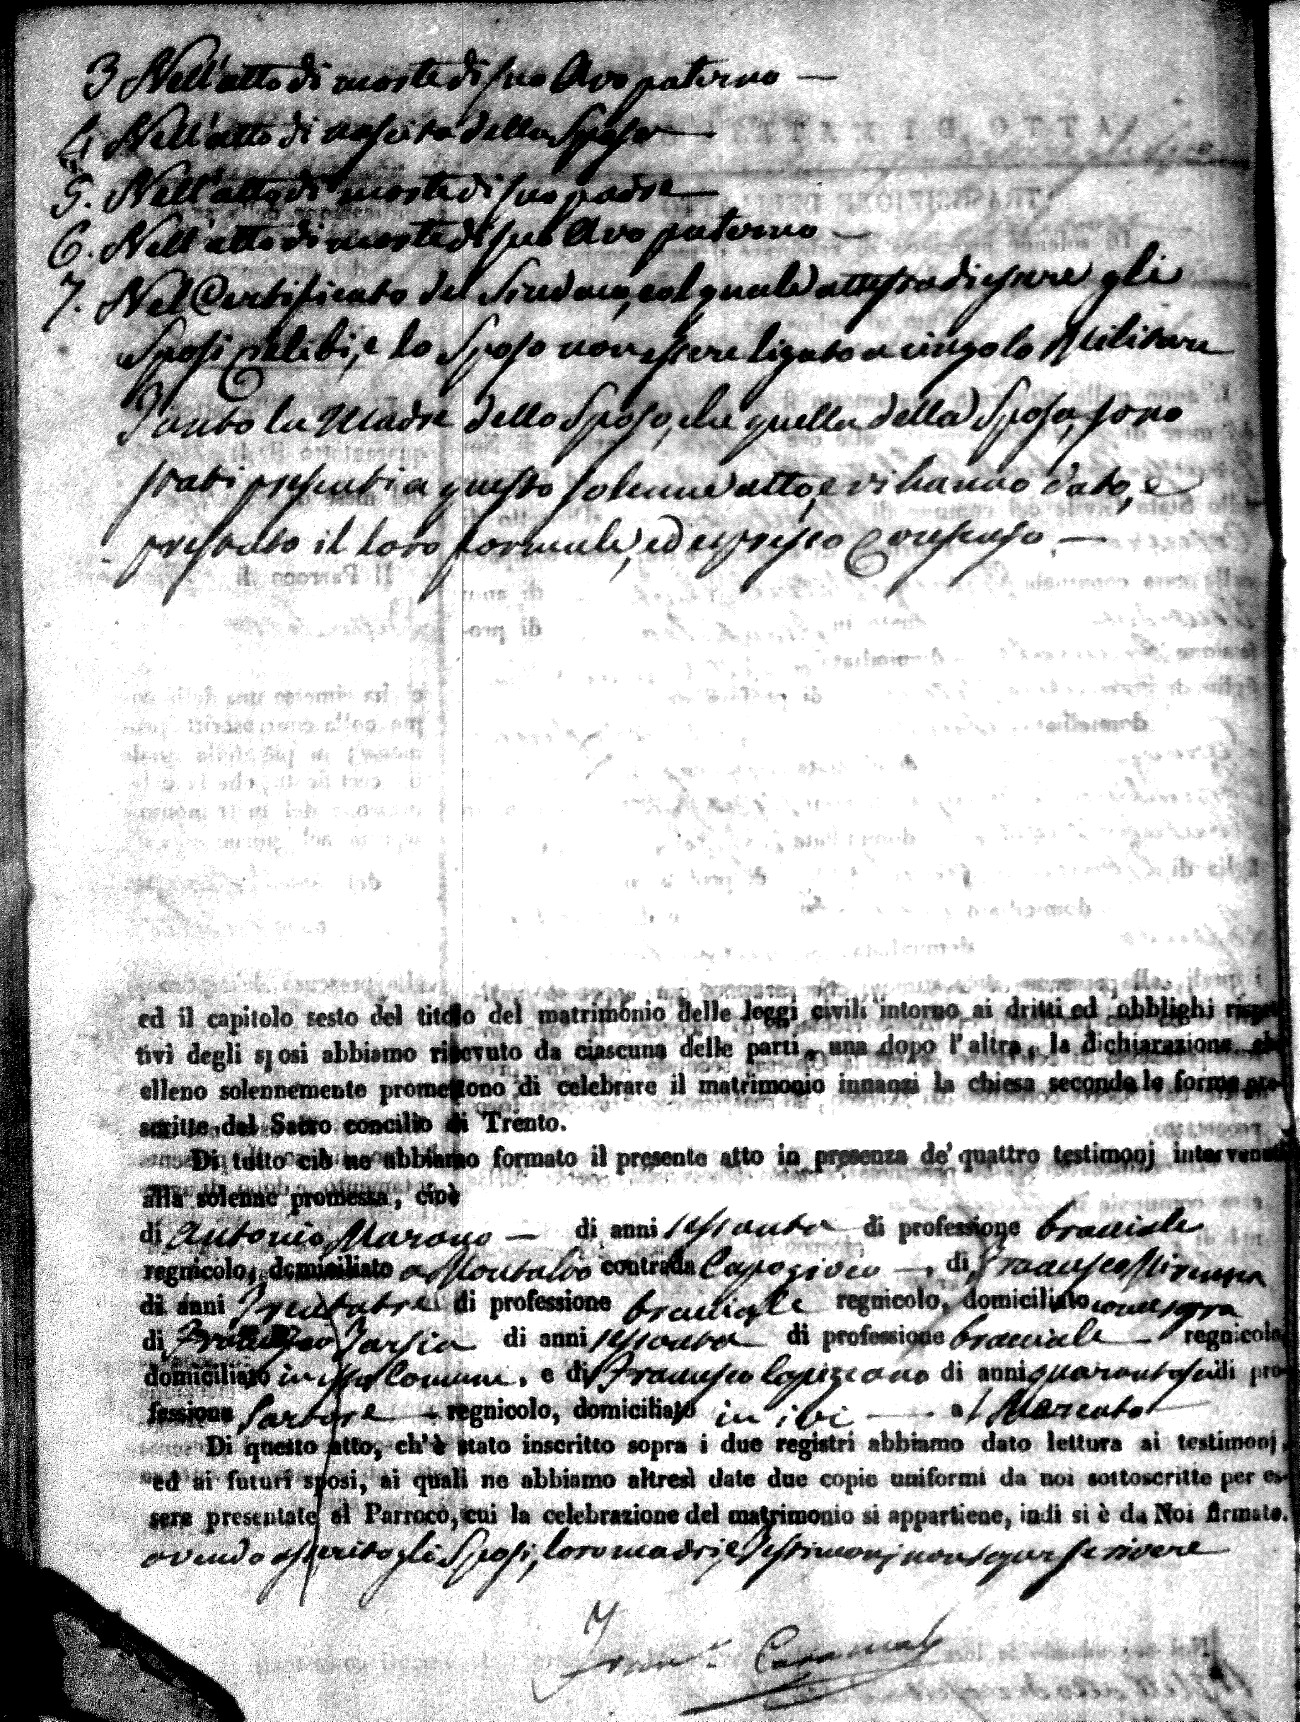 3 Nell'atto di morte di suo Avo paterno —
4 Nell'atto di nascita della Sposa —
5. Nell'atto di morte di suo padre —
6. Nell'atto di morte di suo Avo paterno —
7. Nel Certificato del Sindaco, col quale attesta di essere gli
Sposi Celibi, e lo Sposo non essere ligato a cingolo Militare
Tanto la Madre dello Sposo, che quella della Sposa, sono
stati presenti a questo solenne atto, e vi hanno dato, e
prestato il loro formale, ed espresso Consenso —
ed il capitolo sesto del titolo del matrimonio delle leggi civili intorno ai dritti ed obblighi rispet-
tivi degli sposi abbiamo ricevuto da ciascuna delle parti, una dopo l'altra, la dichiarazione che
elleno solennemente promettono di celebrare il matrimonio innanzi la chiesa secondo le forme pre-
scritte dal Sacro concilio di Trento.
Di tutto ciò ne abbiamo formato il presente atto in presenza de' quattro testimonj intervenuti
alla solenne promessa, cioè
di Antonio Marano — di anni sessanta di professione bracciale
regnicolo, domiciliato a Montalbo contrada Capogiovo —, di Francesco
di anni Trentatre di professione bracciale regnicolo, domiciliato come sopra
di Francesco Tarsia di anni sessanta di professione bracciale — regnicolo
domiciliato in Comune, e di Francesco di anni quarantasei di pro-
fessione Sartore — regnicolo, domiciliato in ivi — a Mercato
Di questo atto, ch'è stato inscritto sopra i due registri abbiamo dato lettura ai testimonj
ed ai futuri sposi, ai quali ne abbiamo altresì date due copie uniformi da noi sottoscritte per es-
sere presentate al Parroco, cui la celebrazione del matrimonio si appartiene, indi si è da Noi firmato.
avendo asserito gli Sposi, loro madri, e testimonj non saper scrivere